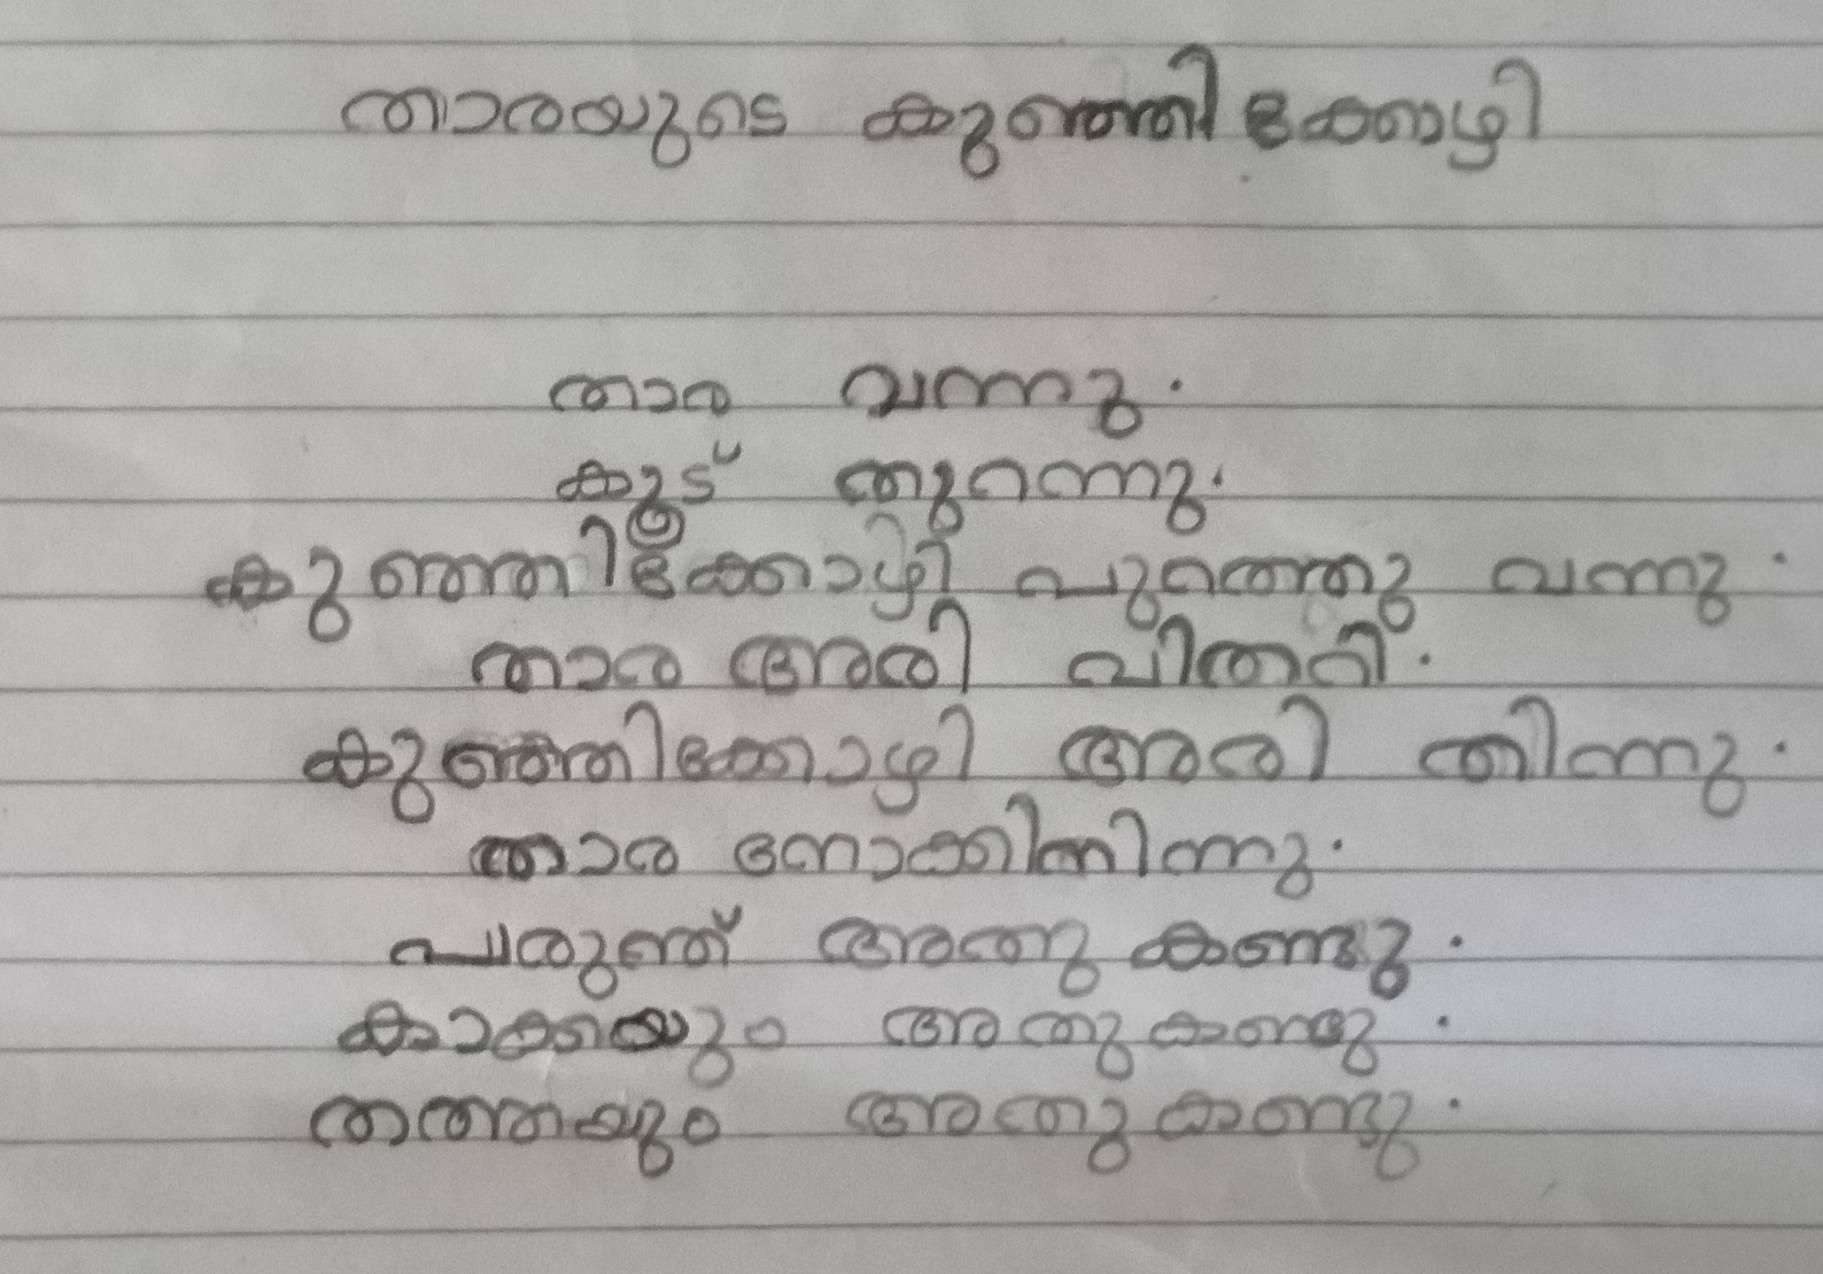 താരയുടെ കുഞ്ഞിക്കോഴി
താര വന്നു.
കൂട് തുറന്നു.
കുഞ്ഞിക്കോഴി പുറത്തു വന്നു.
താര അരി വിതറി.
കുഞ്ഞിക്കോഴി അരി തിന്നു.
താര നോക്കിനിന്നു.
പരുന്ത് അതു കണ്ടു.
കാക്കയും അതുകണ്ടു.
തത്തയും അതുകണ്ടു.